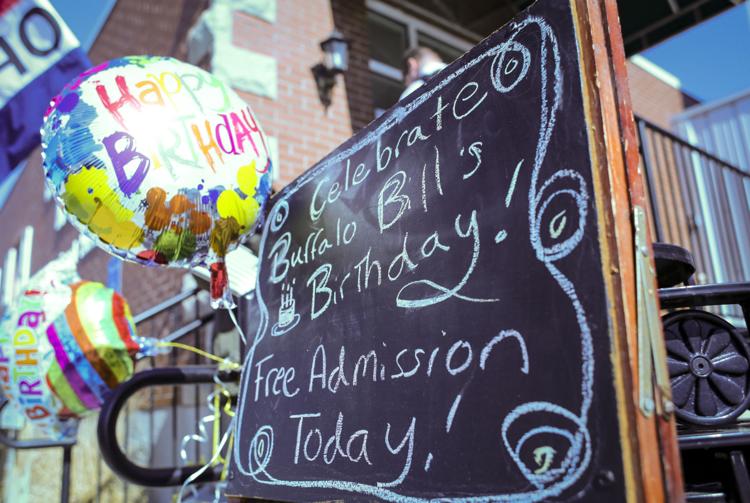 HO
Happy
BiRTHDAY
Celebrate
Buffalo Bill's
Birthday!
Free Admission
Today!
BIRTHDAY